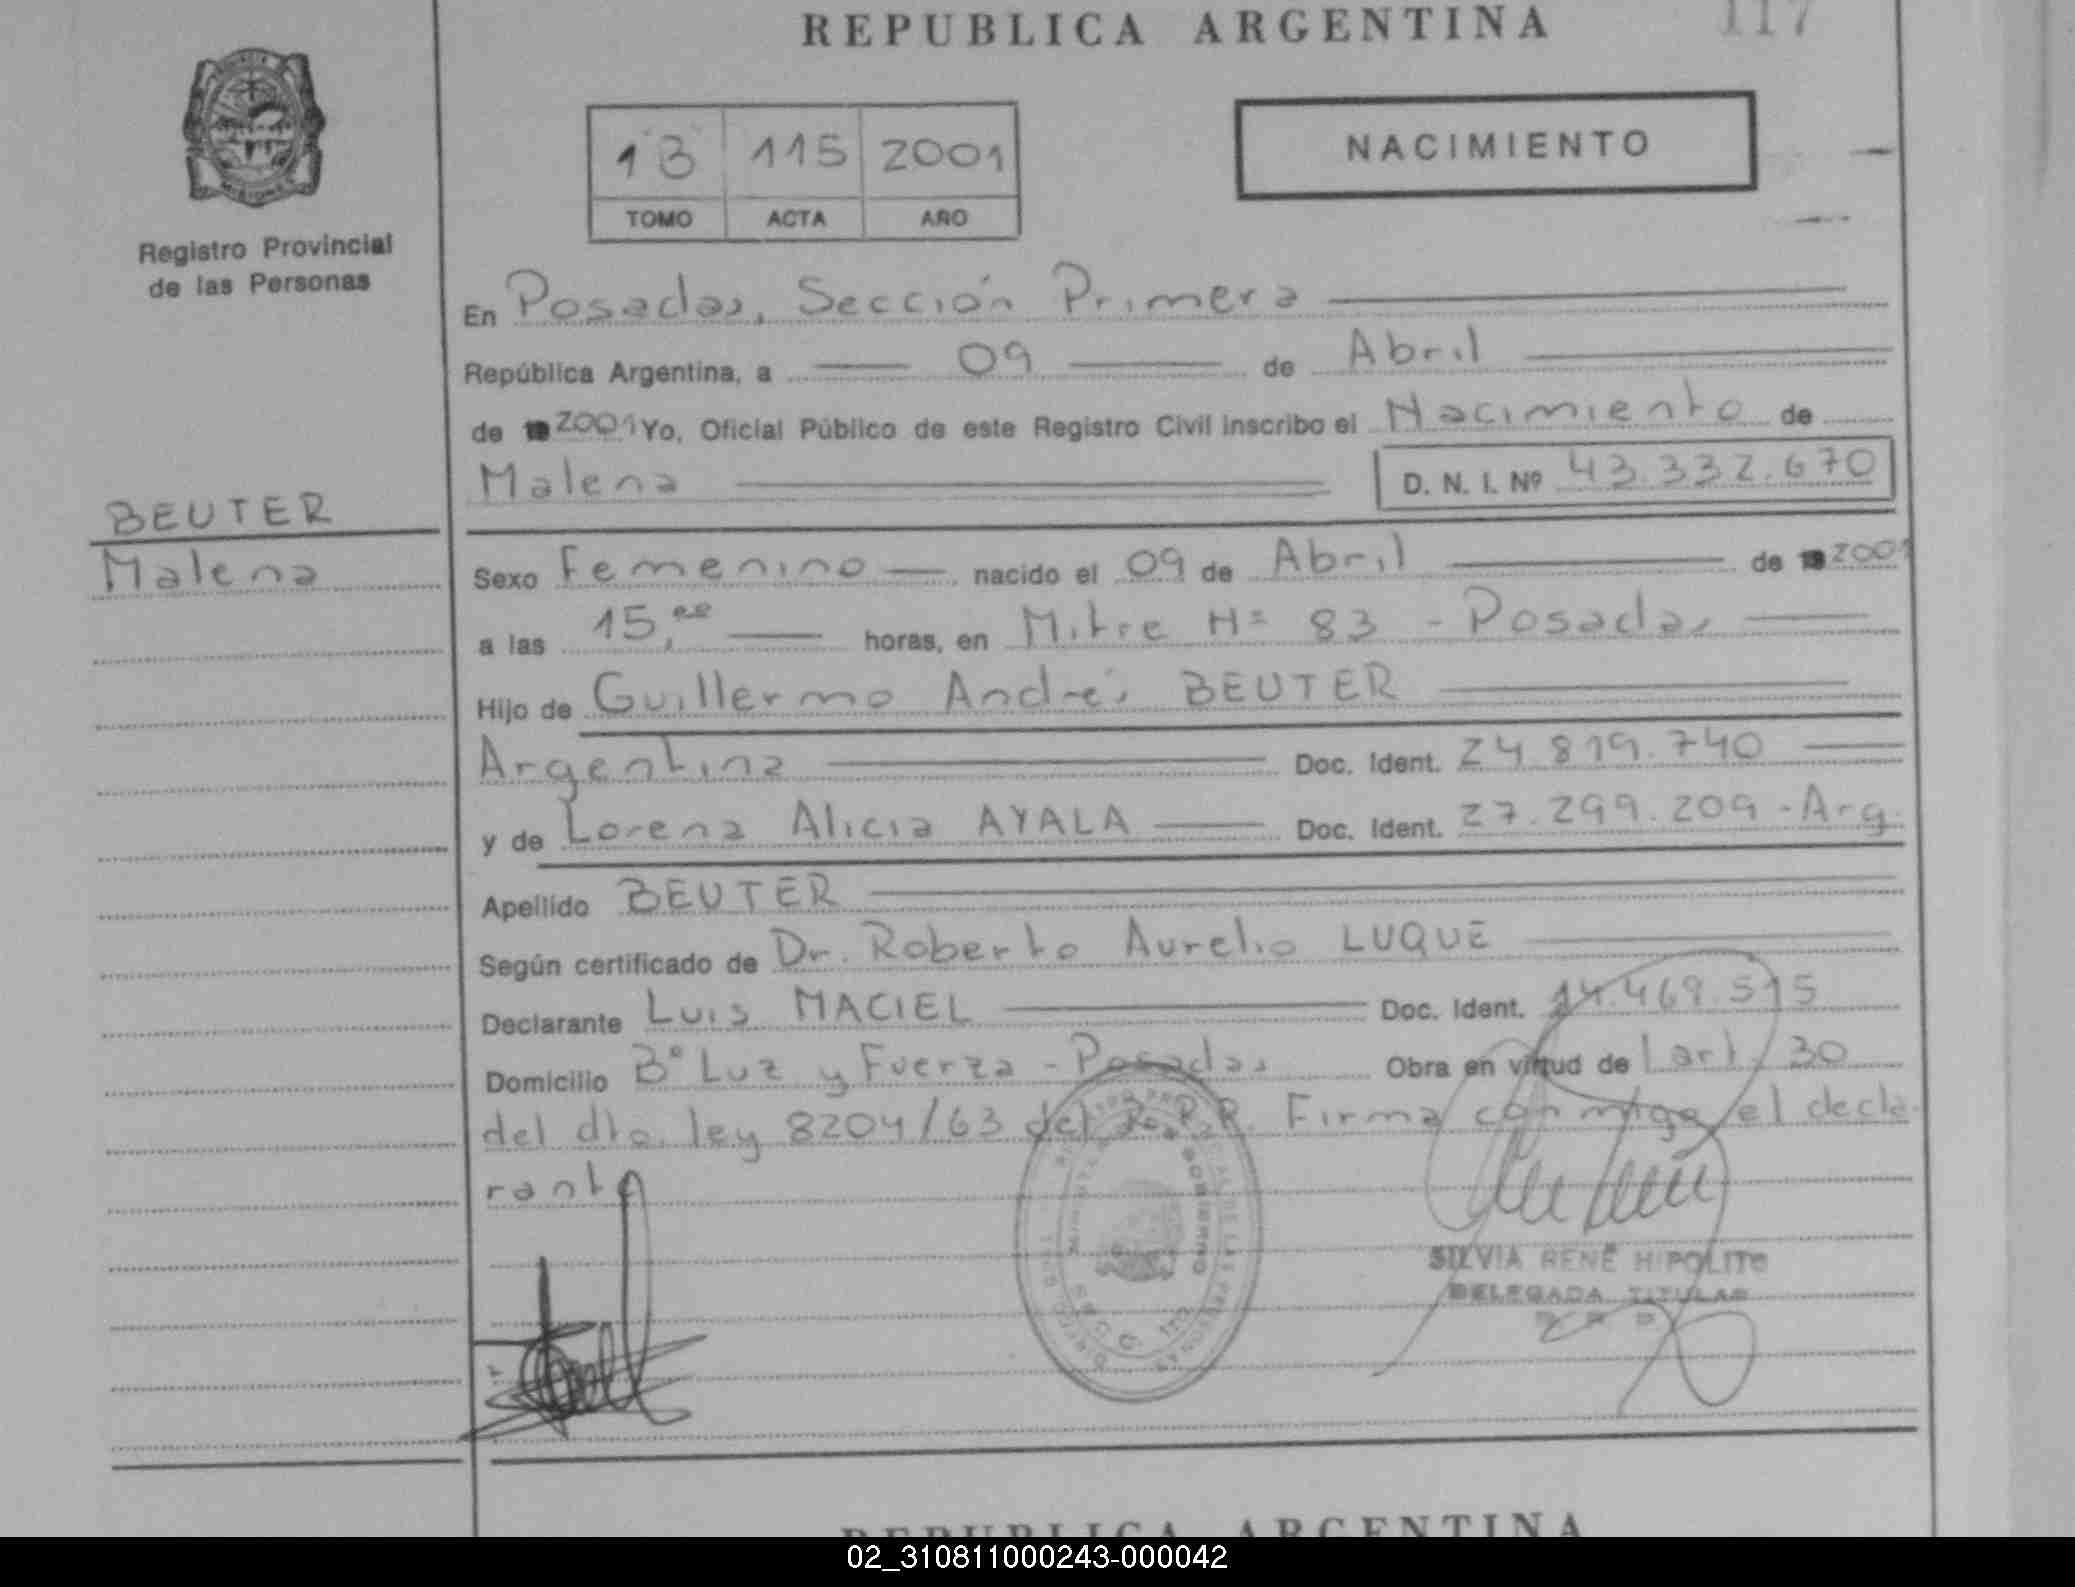 REPUBLICA ARGENTINA
117
Registro Provincial
de las Personas
13 115 2001
TOMO ACTA AÑO
NACIMIENTO
En Posadas, Sección Primera
República Argentina, a 09 de Abril
de 19 2001 Yo, Oficial Público de este Registro Civil inscribo el Nacimiento de
Malena D. N. I. Nº 43.332.670
BEUTER
Malena
Sexo Femenino nacido el 09 de Abril de 19 2001
a las 15,00 horas, en Mitre Nº 83 - Posadas
Hijo de Guillermo Andrés BEUTER
Argentina Doc. Ident. 24.819.740
y de Lorena Alicia AYALA Doc. Ident. 27.299.209 - Arg.
Apellido BEUTER
Según certificado de Dr. Roberto Aurelio LUQUE
Declarante Luis MACIEL Doc. Ident. 14.469.515
Domicilio Bº Luz y Fuerza - Posadas Obra en virtud de l art. 30
del dto. ley 8204/63 del R.P.P. Firma conmigo el decla-
rante
SILVIA RENÉ HIPOLITO
DELEGADA TITULAR
REPUBLICA ARGENTINA
02_310811000243-000042